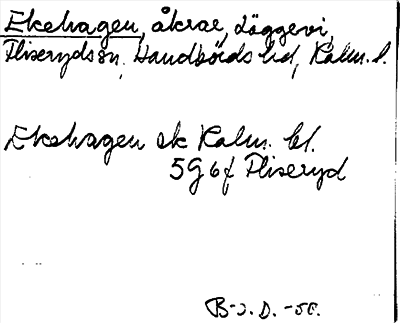 Ekehagen, åkrar, Läggevi,
Fliseryds sn, Handbörds hd, Kalm. l.
Ekehagen ek Kalm. bl.
5G6f Fliseryd
B-J. D. -58.